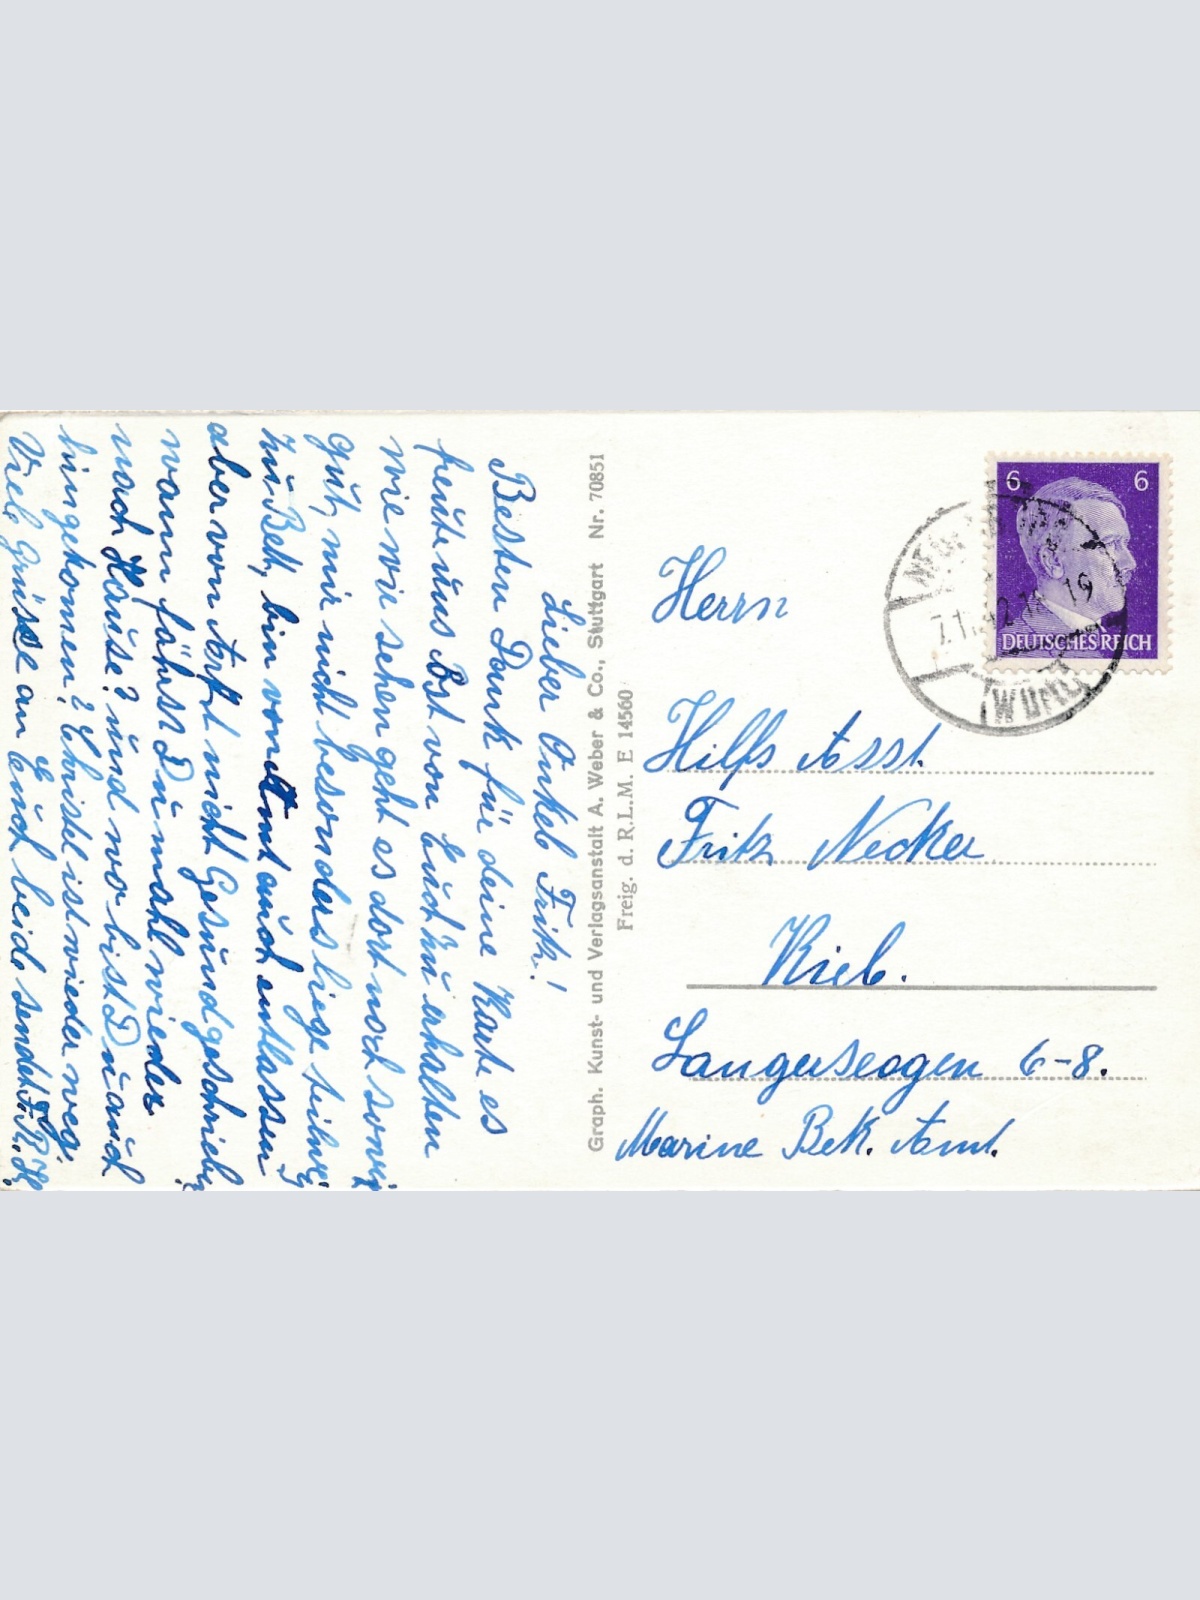 Lieber Onkel Fritz!
Besten Dank für deine Karte es
freute uns Post von Euch zu erhalten
wie wir sehen geht es dort noch sowei
gut, mir nicht besonders liege teilwei
zu Bett, bin vom Amt auch entlassen
aber von Arzt nicht Gesund geschrieben
wann fährst Du mahl wieder
nach Hause? und wo bist Du auch
hingekomen? Christel ist wieder weg.
Viele Grüsse an Euch beide sendet
Graph. Kunst- und Verlagsanstalt A. Weber & Co., Stuttgart Nr. 70851
Freig. d. R.L.M. E 14560
6 6
DEUTSCHES REICH
7.1.42
19
(WÜRTT)
Herrn
Hilfs Asst.
Fritz Necker
Kiel.
Langersegen 6-8.
Marine Bek. Amt.